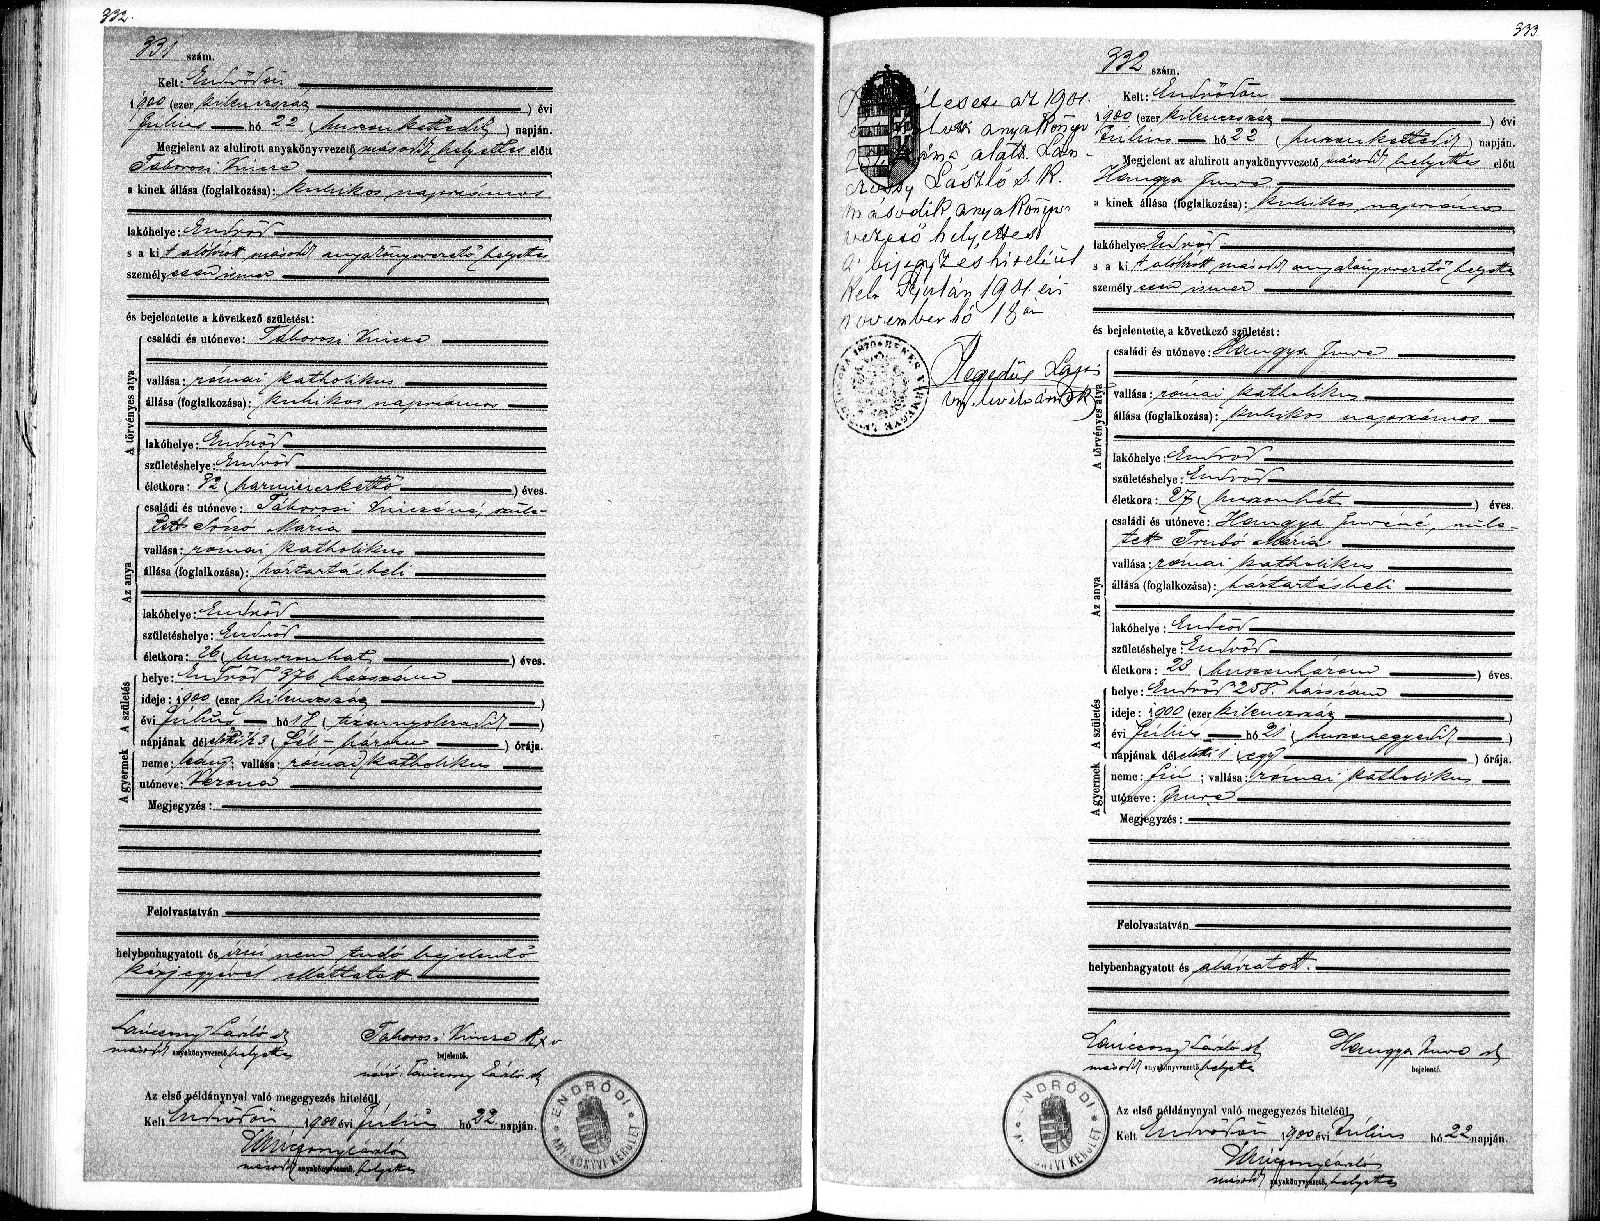 332.
331 szám.
Kelt: Endrődön
1900 (ezer kilenczszáz) évi
Július hó 22 (huszonkettedik) napján.
Megjelent az alulirott anyakönyvvezető másodh. helyettes előtt
Táborosi Vincze
a kinek állása (foglalkozása): kubikos napszámos
lakóhelye: Endrőd
s a kit alólirott másodh. anyakönyvvezető helyettes
személyesen ismer
és bejelentette a következő születést:
A törvényes atya
családi és utóneve: Táborosi Vincze
vallása: római katholikus
állása (foglalkozása): kubikos napszámos
lakóhelye: Endrőd
születéshelye: Endrőd
életkora: 32 (harminczkettő) éves.
Az anya
családi és utóneve: Táborosi Vinczéné, szüle-
tett Mária
vallása: római katholikus
állása (foglalkozása): háztartásbeli
lakóhelye: Endrőd
születéshelye: Endrőd
életkora: 26 (huszonhat) éves.
A születés
helye: Endrőd 376 házszám
ideje: 1900 (ezer kilenczszáz)
évi Július hó 18 (tizennyolczadik)
napjának délelőtti ½3 (fél-három) órája.
A gyermek
neme: leány; vallása: római katholikus
utóneve: Verona
Megjegyzés:
Felolvastatván
helybenhagyatott és írni nem tudó bejelentő
kézjegyével elláttatott.
Lánczony László sk
másodh. anyakönyvvezető helyettes
Táborosi Vincze k x v
bejelentő.
névíró: Lánczony László sk
Az első példánynyal való megegyezés hiteléül,
Kelt Endrődön 1900 évi Július hó 22 napján.
Lánczony László
másodh. anyakönyvvezető helyettes
ENDRŐDI
333
az 1901.
anyakönyv
alatt. Lán-
László s. k.
második anyakönyv
vezető helyettes
a bejegyzés hiteléül
Kelt Gyulán 1901. évi
november hó 18 án
Hegedüs Lajos
vm. levéltárnok
332 szám.
Kelt: Endrődön
1900 (ezer kilenczszáz) évi
Július hó 22 (huszonkettedik) napján.
Megjelent az alulirott anyakönyvvezető másodh. helyettes előtt
Hangya Imre
a kinek állása (foglalkozása): kubikos napszámos
lakóhelye: Endrőd
s a kit alólirott másodh. anyakönyvvezető helyettes
személyesen ismer
és bejelentette a következő születést:
A törvényes atya
családi és utóneve: Hangya Imre
vallása: római katholikus
állása (foglalkozása): kubikos napszámos
lakóhelye: Endrőd
születéshelye: Endrőd
életkora: 27 (huszonhét) éves.
Az anya
családi és utóneve: Hangya Imréné, szüle-
tett Mária
vallása: római katholikus
állása (foglalkozása): háztartásbeli
lakóhelye: Endrőd
születéshelye: Endrőd
életkora: 23 (huszonhárom) éves.
A születés
helye: Endrőd 258. házszám
ideje: 1900 (ezer kilenczszáz)
évi Július hó 21 (huszonegyedik)
napjának délelőtti 1 (egy) órája.
A gyermek
neme: fiú; vallása: római katholikus
utóneve: Imre
Megjegyzés:
Felolvastatván
helybenhagyatott és aláíratott.
Lánczony László sk
másodh. anyakönyvvezető helyettes
Hangya Imre sk
bejelentő.
Az első példánynyal való megegyezés hiteléül,
Kelt Endrődön 1900 évi Július hó 22 napján.
Lánczony László
másodh. anyakönyvvezető helyettes
ENDRŐDI